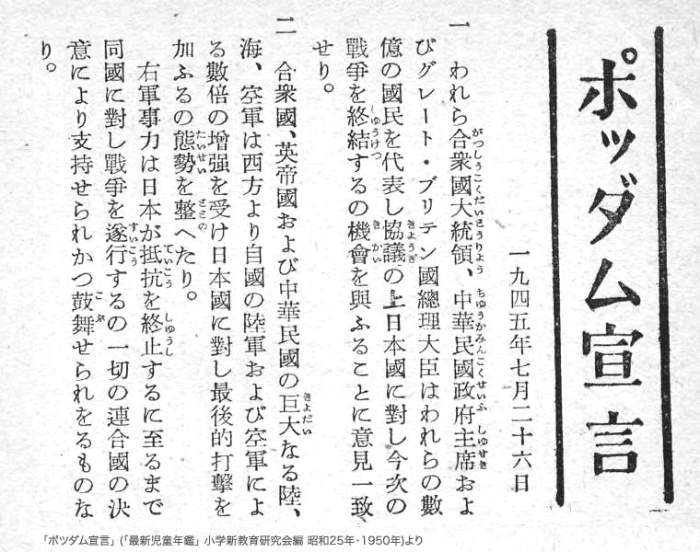 ポツダム宣言
一九四五年七月二十六日
一　われら合衆國大統領、中華民國政府主席およ
びグレート・ブリテン國總理大臣はわれらの數
億の國民を代表し協議の上日本國に對し今次の
戰爭を終結するの機會を與ふることに意見一致
せり。
二　合衆國、英帝國および中華民國の巨大なる陸、
海、空軍は西方より自國の陸軍および空軍によ
る數倍の增强を受け日本國に對し最後的打擊を
加ふるの態勢を整へたり。
右軍事力は日本が抵抗を終止するに至るまで
同國に對し戰爭を遂行するの一切の連合國の決
意により支持せられかつ鼓舞せられをるものな
り。
「ポツダム宣言」(「最新児童年鑑」小学新教育研究会編 昭和25年・1950年)より